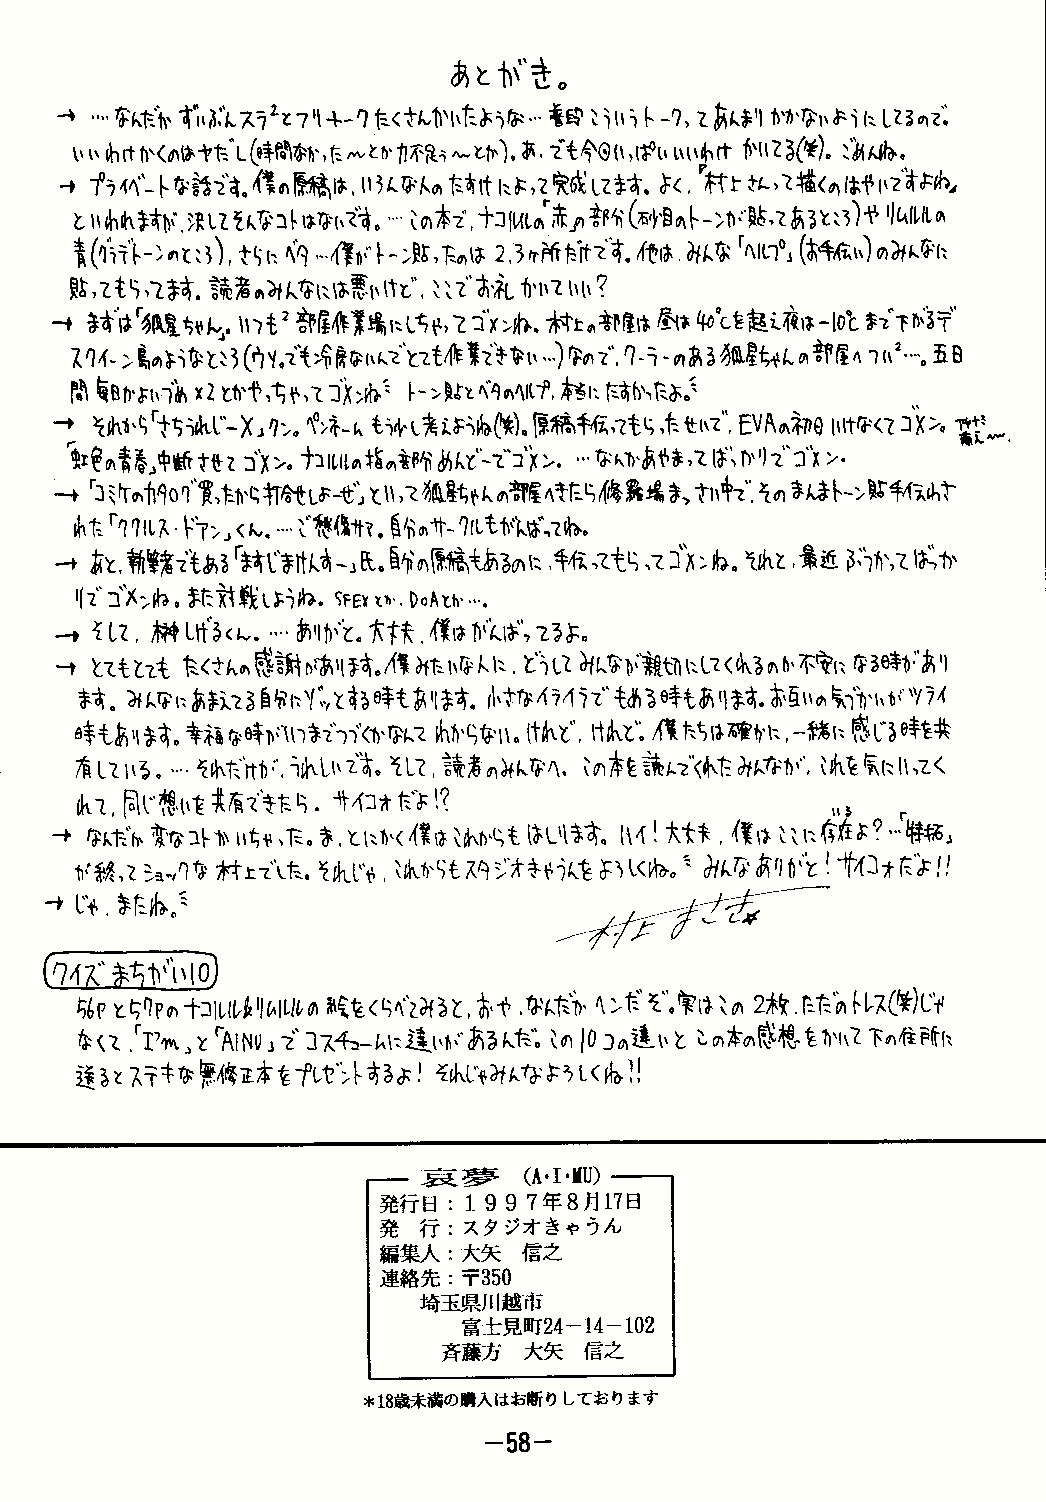 あとがき。
→ …なんだか ずいぶんスラ²とフリートークたくさんかいたような… 普段こういうトークってあんまりかかないようにしてるので。
いいわけかくのはヤだし(時間なかった〜とか力不足ぅ〜とか)。あ、でも今回いっぱいいいわけ かいてる(笑)。ごめんね。
→ プライベートな話です。僕の原稿は、いろんな人のたすけによって完成してます。よく、「村上さんって描くのはやいですよね」
といわれますが、決してそんなコトはないです。…この本で、ナコルルの「赤」の部分(砂目のトーンが貼ってあるところ)やリムルルの
青(グラデトーンのところ)、さらにベタ…僕がトーン貼ったのは 2、3ヶ所だけです。他は、みんな「ヘルプ」(お手伝い)のみんなに
貼ってもらってます。読者のみんなには悪いけど、ここでお礼かいていい?
→ まずは「狐星ちゃん」。いつも² 部屋作業場にしちゃってゴメンね。村上の部屋は昼は40℃を超え夜は-10℃まで下がるデ
スクイーン島のようなところ(ウソ。でも冷房ないんでとても作業できない…)なので、クーラーのある狐星ちゃんの部屋へつい²…。五日
間毎日かよいづめ×2とかやっちゃってゴメンねミ トーン貼とベタのヘルプ、本当にたすかったよ。ミ
→ それから「さちうれじーX」クン。ペンネームもう少し考えようね(笑)。原稿手伝ってもらったせいで、EVAの初日いけなくてゴメン。
「虹色の青春」中断させてゴメン。ナコルルの指の部分めんどーでゴメン。…なんかあやまってばっかりでゴメン。
→「コミケのカタログ買ったから打合せしよーぜ」といって狐星ちゃんの部屋へきたら修羅場まっさい中で、そのまんまトーン貼手伝わさ
れた「ククルス・ドアン」くん。…ご愁傷サマ。自分のサークルもがんばってね。
→ あと、執筆者でもある「ますじまけんすー」氏。自分の原稿もあるのに、手伝ってもらってゴメンね。それと、最近 ぶつかってばっか
りでゴメンね。また対戦しようね。SFEXとか、DOAとか…。
→ そして、榊しげるくん。…ありがと。大丈夫、僕はがんばってるよ。
→ とてもとても たくさんの感謝があります。僕みたいな人に、どうしてみんなが親切にしてくれるのか不安になる時があり
ます。みんなにあまえてる自分にゾッとする時もあります。小さなイライラでもめる時もあります。お互いの気づかいがツライ
時もあります。幸福な時がいつまでつづくかなんてわからない。けれど、けれど。僕たちは確かに、一緒に感じる時を共
有している。…それだけが、うれしいです。そして、読者のみんなへ。この本を読んでくれたみんなが、これを気にいってく
れて、同じ想いを共有できたら。サイコォだよ!?
→ なんだか変なコトかいちゃった。ま、とにかく僕はこれからもはしります。ハイ!大丈夫、僕はここに存在(いる)よ?…「特捜」
が終ってショックな村上でした。それじゃ、これからもスタジオきゃうんをよろしくね。ミ みんなありがと!サイコォだよ!!
→ じゃ、またね。ミ
村上 まさき
クイズ まちがい10
56Pと57Pのナコルル&リムルルの絵をくらべてみると、おや、なんだかヘンだぞ。実はこの2枚、ただのトレス(笑)じゃ
なくて、「I'm」と「AINU」でコスチュームに違いがあるんだ。この10コの違いとこの本の感想をかいて下の住所に
送るとステキな無修正本をプレゼントするよ! それじゃみんなよろしくね!!
哀夢 (A・I・MU)
発行日：1997年8月17日
発　行：スタジオきゃうん
編集人：大矢　信之
連絡先：〒350
埼玉県川越市
富士見町24−14−102
斉藤方　大矢　信之
＊18歳未満の購入はお断りしております
−58−